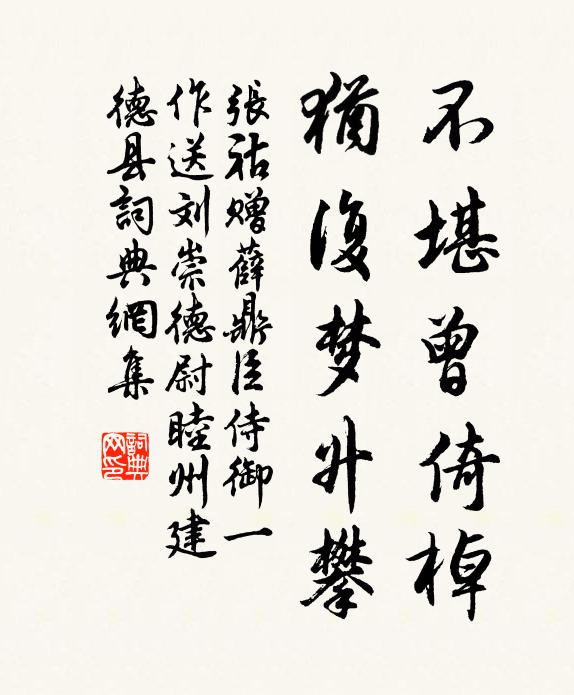 不堪曾倚棹
犹复梦升攀
張祜赠薛鼎臣侍御一
作送刘崇德尉睦州建
德县詞典網集
詞典网印